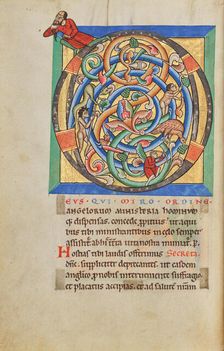 EVS· QVI· MIRO· ORDINE·
angelorum ministeria hominū
q; dispensas. concede ꝓpitius. ut a
quibus tibi ministrantibus in celo semper
assistitur. ab his in terra uita nostra muniat. P.
Hostias tibi laudis offerimus Secreta.
dñe. suppliciter deprecantes. ut easdem
anglico ꝓ nobis interueniente suffragio
et placatus accipias. et ad salutē nram